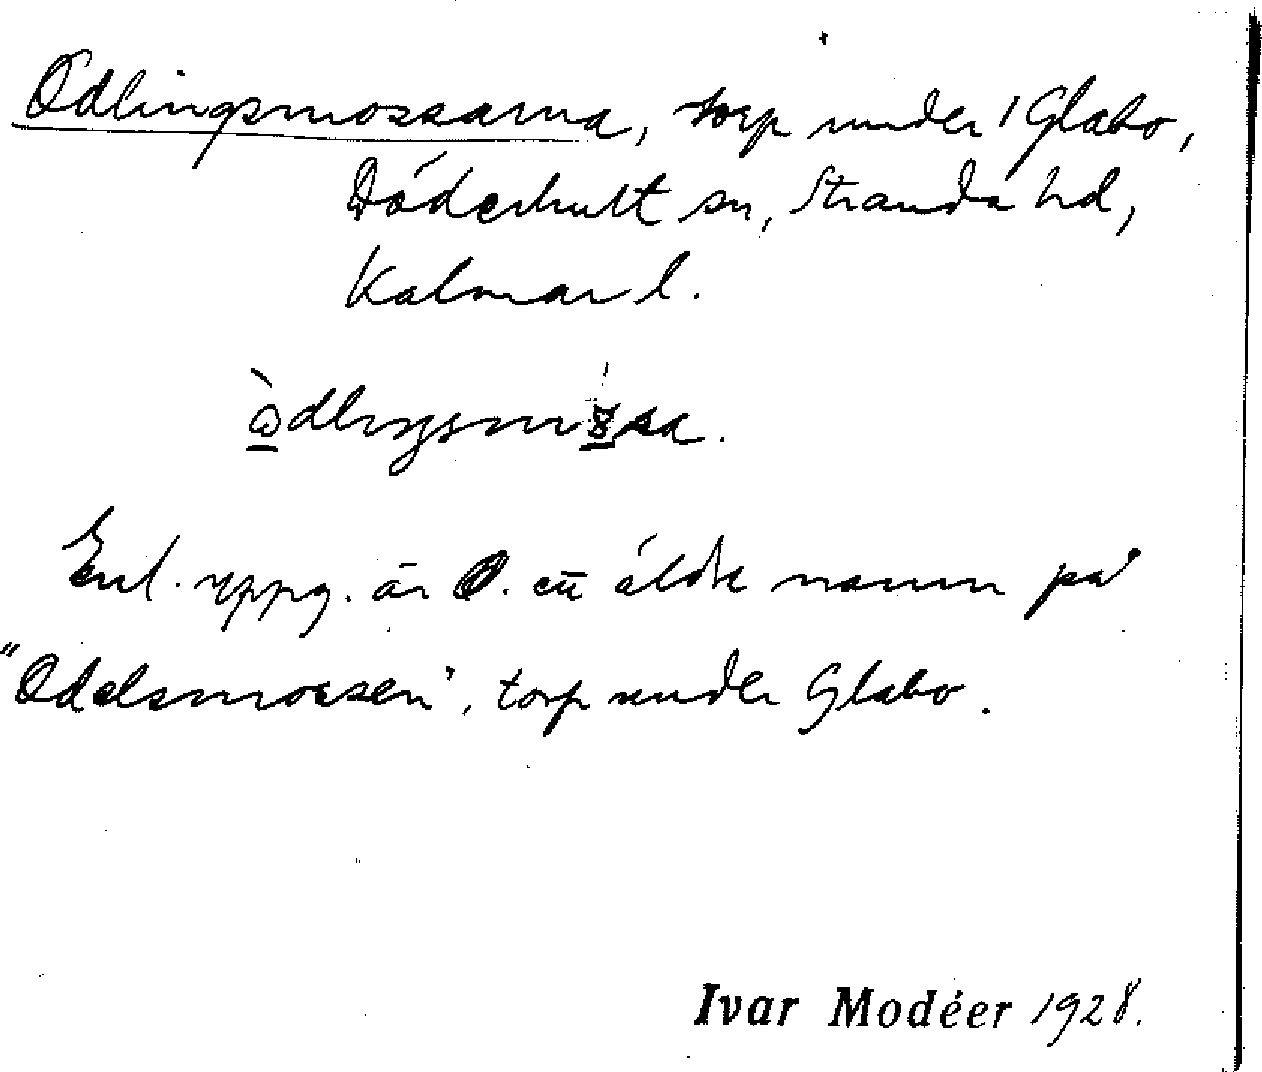 Odlingsmossarna, torp under Glabo,
Döderhult sn, Stranda hd,
Kalmar l.
Enl. uppg. är O. ett äldre namn på
"Odelsmossen", torp under Glabo.
Ivar Modéer 1928.